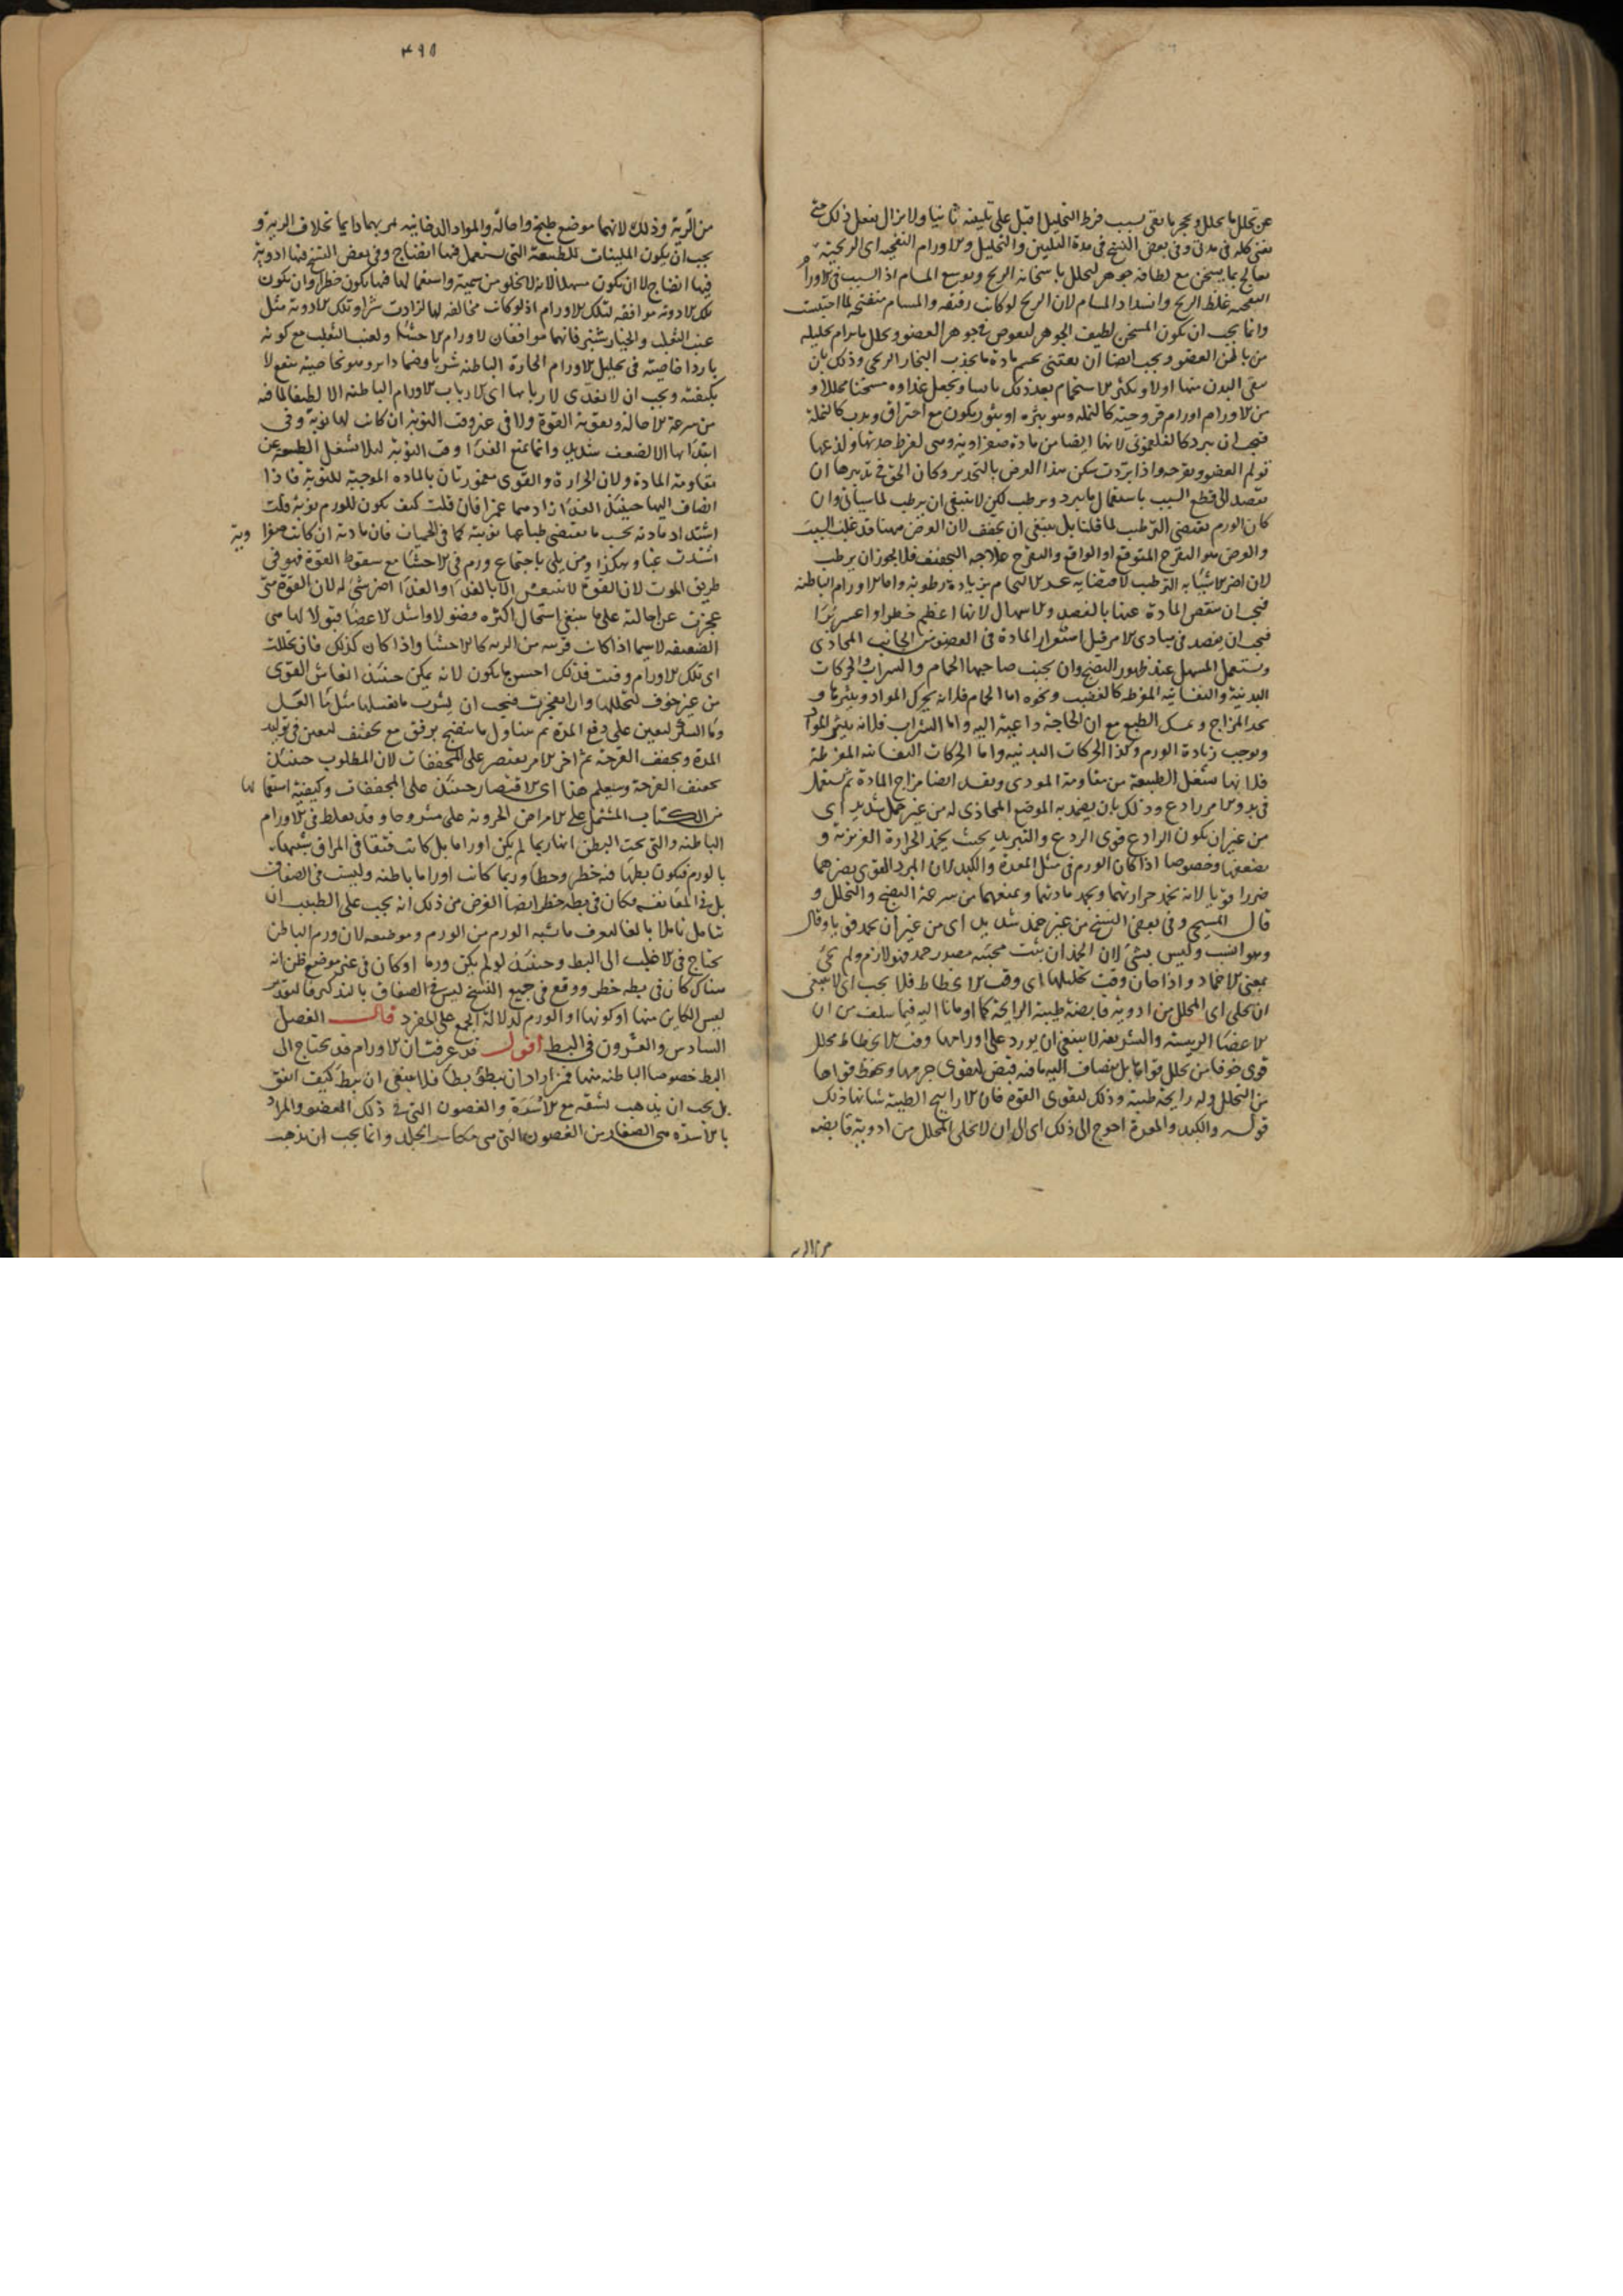 عن تحلل ما يحلل وتحجر ما بقى بسبب فرط التحليل اقبل على تليينه ثانيا ولا يزال يفعل ذلك حتى
يفنى كله في مدتى وفي بعض النسخ في مدة التليين والتحليل والاورام النفخية اى الريحية
تعالج بما يسخن مع لطافة جوهر ليحلل باسخانه الريح ويوسع المسام اذ السبب في الاورام
النفخية غلظ الريح وانسداد المسام لان الريح لو كانت رقيقة والمسام منفتحة لما احتبست
وانما يجب ان يكون المسخن لطيف الجوهر ليغوص في جوهر العضو ويحلل ما يرام تحليله
من باطن العضو ويجب ايضا ان يعتنى بحسم مادة ما يحدث البخار الريحى وذلك بان
ينقى البدن منها اولا ويكثر الاستحمام بعد ذلك يابسا ويجعل غذاوه مسخنا محللا و
من الاورام اورام قروحية كالنملة وهو بثره او بثور يكون مع احتراق ويدب كالنملة
فيجب ان يبرد كالفلغمونى لانها ايضا من مادة صفراوية وهى لفرط حدتها ولذعها
تولم العضو وتقرحه واذا بردت سكن هذا العرض بالتخدير وكان الحق في تدبيرها ان
يقصد الى قطع السبب باستعمال ما يبرد ويرطب لكن لا ينبغى ان يرطب لما سياتى وان
كان الورم يقتضى الترطيب لما قلنا بل ينبغى ان يجفف لان العرض ههنا قد غلب السبب
والعرض هو التقرح المتوقع او الواقع والتقرح علاجه التجفيف فلا يجوز ان يرطب
لان اضر الاشياء به الترطيب لاقتضايه عدم الالتحام بزيادة رطوبة واما الاورام الباطنة
فيجب ان ينقص المادة عنها بالفصد والاسهال لانها اعظم خطرا واعسر برءا
فيجب ان يفصد في مبادى الامر قبل استقرار المادة في العضو من الجانب المحاذى
ويستعمل المسهل عند ظهور النضج وان يجتنب صاحبها الحمام والشراب والحركات
البدنية والنفسانية المفرطة كالغضب ونحوه اما الحمام فلانه يحرك المواد ويثيرها و
يحد المزاج ويمسك الطبع مع ان الحاجة داعية اليه واما الشراب فلانه يثير المواد
ويوجب زيادة الورم وكذا الحركات البدنية واما الحركات النفسانية المفرطة
فلانها تشغل الطبيعة عن مقاومة الموذى ويفسد ايضا مزاج المادة ثم يستعمل
في بدو الامر ردع وذلك بان يضمد به الموضع المحاذى له من غير حمل شديد اى
من غير ان يكون الرادع قوى الردع والتبريد بحيث يخمد الحرارة الغريزية و
يضعفها وخصوصا اذا كان الورم في مثل المعدة والكبد لان المبرد القوى يضرهما
ضررا قويا لانه يخمد حرارتهما ويجمد مادتهما ويمنعهما من سرعة النضج والتحلل و
قال المسيحى وفي بعض النسخ من غير خمد شديد اى من غير ان يخمد قويا وقال
وهو انسب وليس بشئ لان الخمد ان ثبت مجيئه مصدر خمد فهو لازم ولم يجئ
بمعنى الاخماد واذا حان وقت تحليلها اى وقت الانحطاط فلا يجب اى لا ينبغى
ان يخلى اى المحلل من ادوية قابضة طيبة الرايحة كما اومانا اليه فيما سلف من ان
الاعضا الرييسة والشريفة لا ينبغى ان يورد على اورامها وقت الانحطاط محلل
قوى خوفا من تحلل قواها بل يضاف اليه ما فيه قبض ليقوى جرمها ويحفظ قواها
من التحلل وله رايحة طيبة وذلك ليقوى القوة فان الارايح الطيبة شانها ذلك
قوله والكبد والمعدة احوج الى ذلك اى الى ان لا يخلى المحلل من ادوية قابضة
من الرية
٤٩٥
من الرية وذلك لانهما موضع طبخ واحالة والمواد الدخانية تمر بهما دايما بخلاف الرية و
يجب ان يكون الملينات للطبيعة التى يستعمل فيها انضاج وفي بعض النسخ فيها ادوية
فيها انضاج لا ان يكون مسهلا لانه لا يخلو من سمية واستعمالها فيها يكون خطرا وان يكون
تلك الادوية موافقة لتلك الاورام اذ لو كانت مخالفة لها لزادت شرا وتلك الادوية مثل
عنب الثعلب والخيارشنبر فانهما موافقان لاورام الاحشا ولعنب الثعلب مع كونه
باردا خاصية في تحليل الاورام الحارة الباطنة شربا وضمادا وهو بخاصيته ينفع لا
بكيفيته ويجب ان لا يغذى لاربابها اى لارباب الاورام الباطنة الا لطيفا لما فيه
من سرعة الاحالة وتقوية القوة ولا في غير وقت النوبة ان كانت لها نوبة وفي
ابتدايها الا لضعف شديد وانما يمنع الغذا وقت النوبة ليلا تشغل الطبيعة عن
مقاومة المادة ولان الحرارة والقوى مغمورتان بالمادة الموجبة للنوبة فاذا
انضاف اليها حينئذ الغذا ازدادتا غمرا فان قلت كيف يكون للورم نوبة قلت
اشتداد مادته بحسب ما يقتضى طباعها نوبته كما في الحميات فان مادته ان كانت صفراوية
اشتدت غبا وهكذا ومن بلى باجتماع ورم في الاحشا مع سقوط القوة فهو في
طريق الموت لان القوة لا تنتعش الا بالغذا والغذا اضر شئ له لان القوة متى
عجزت عن احالته على ما ينبغى استحال اكثره فضولا واشد الاعضا قبولا لها هى
الضعيفة لاسيما اذا كانت قريبة من الرية كالاحشا واذا كان كذلك فان تحللت
اى تلك الاورام وفنيت فذلك احسن ما يكون لانه يمكن حينئذ انعاش القوى
من غير خوف لتحللها وان انفجرت فيجب ان يشرب ما يغسلها مثل ما العسل
وما السكر ليعين على دفع المدة ثم يتناول ما ينضج برفق مع تجفيف ليعين في توليد
المدة ويجفف القرحة ثم اخر الامر يقتصر على المجففات لان المطلوب حينئذ
تجفيف القرحة وسيعلم هذا اى الاقتصار حينئذ على المجففات وكيفية استعمالها
من الكتاب المشتمل على الامراض الجزوية على مشروحا وقد يغلط في الاورام
الباطنة والتى تحت البطن انها ربما لم يكن اوراما بل كانت فتقا في المراق يشبهها
بالورم فيكون بطها فيه خطر وخطا وربما كانت اوراما باطنة وليست في الصفاق
بل في المعا نفسه فكان في بطه خطر ايضا الغرض من ذلك انه يجب على الطبيب ان
يتامل تاملا بالغا ليعرف ما يشبه الورم من الورم وموضعه لان ورم الباطن
يحتاج في الاغلب الى البط وحينئذ لو لم يكن ورما او كان في غير موضع ظن انه
هناك كان في بطه خطر ووقع في جميع النسخ ليس في الصفاق بالتذكير فالتقدير
ليس الكاين منها او كونها او الورم لدلالة الجمع على المفرد قال الفصل
السادس والعشرون في البط اقول قد عرفت ان الاورام قد يحتاج الى
البط خصوصا الباطنة منها فمن اراد ان يبط بطا فلا ينبغى ان يبط كيف اتفق
بل يجب ان يذهب لشقه مع الاسرة والغضون التى في ذلك العضو والمراد
بالاسرة هى الصغار من الغضون التى هى مكاسر الجلد وانما يجب ان يذهب